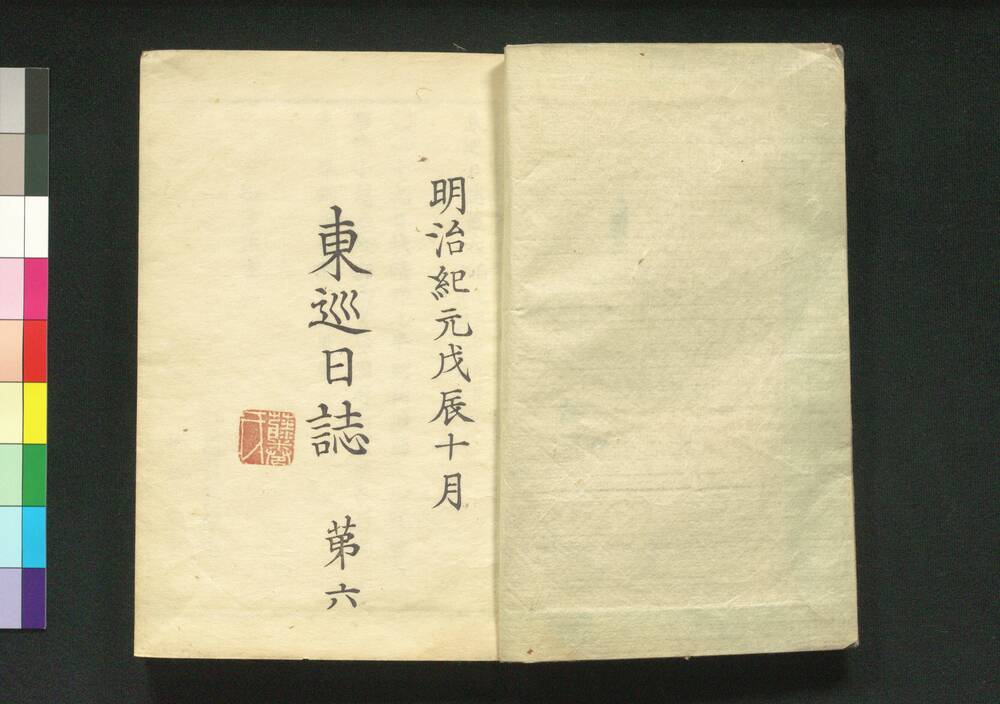 明治紀元戊辰十月
東巡日誌 苐六